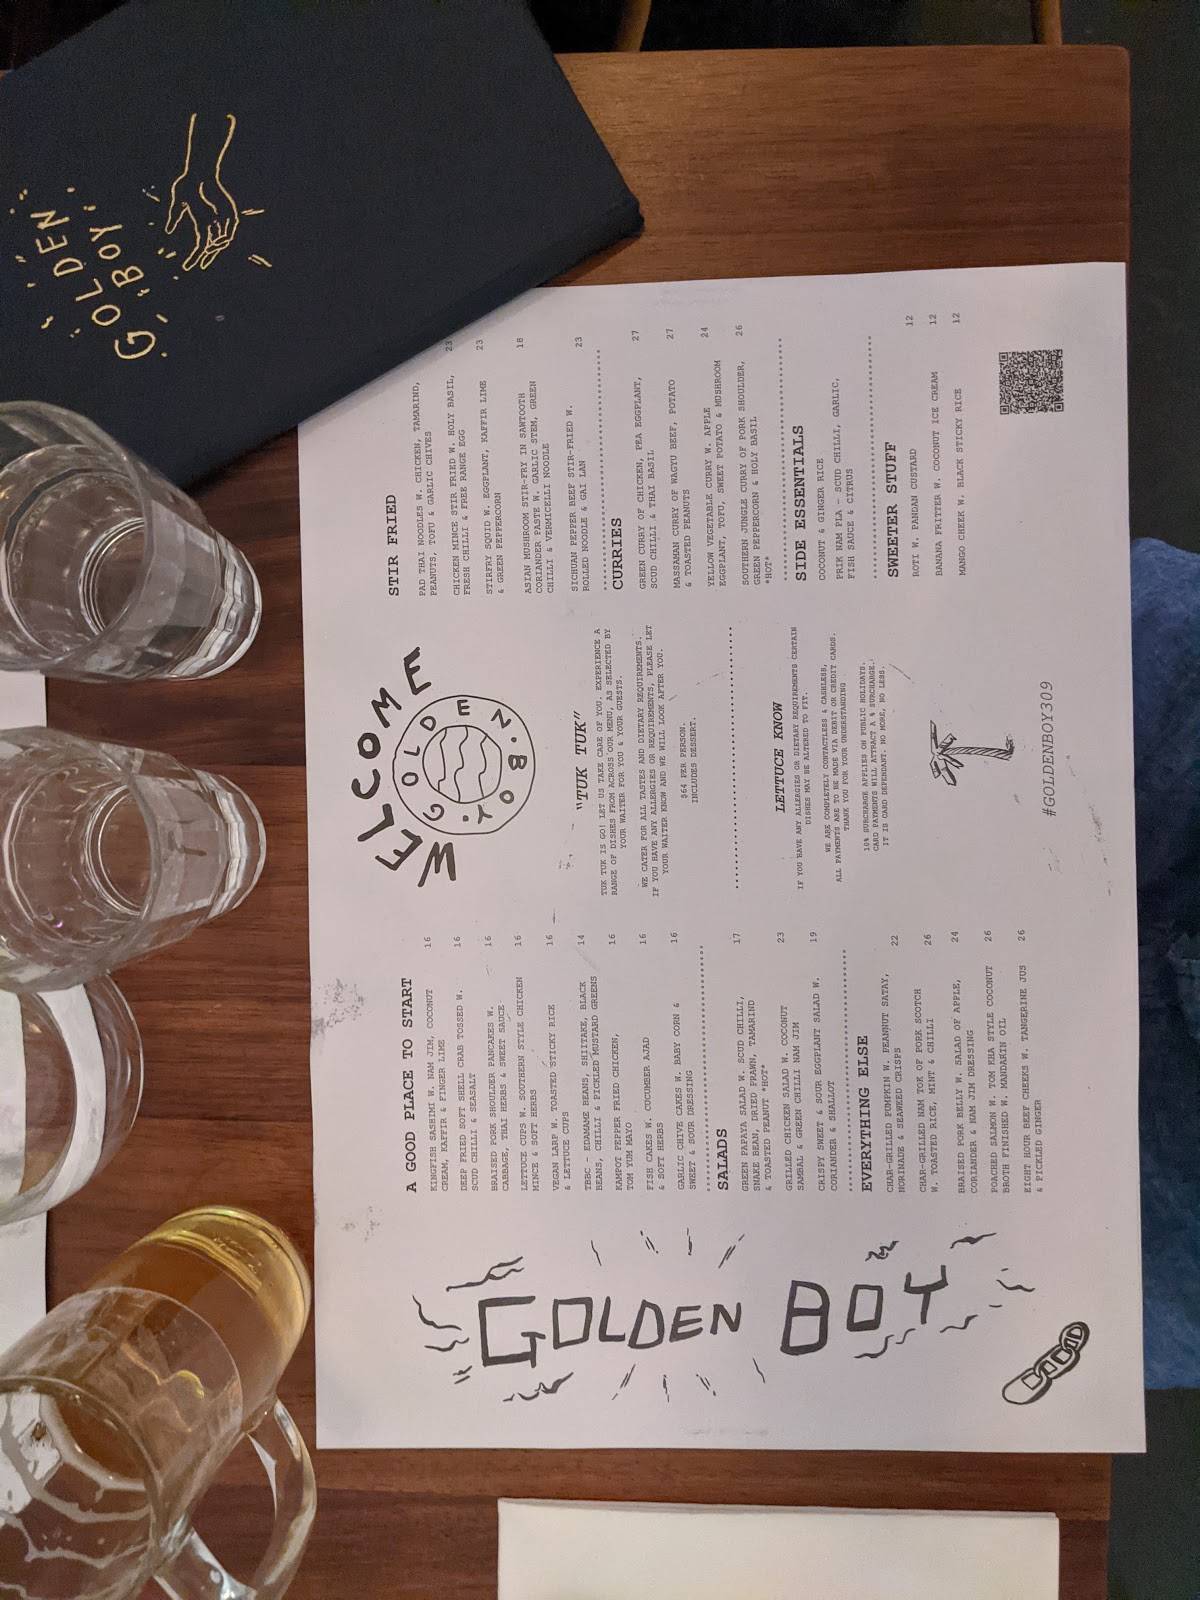 GOLDEN
BOY
GOLDEN BOY
A GOOD PLACE TO START
KINGFISH SASHIMI W. NAM JIM, COCONUT 16
CREAM, KAFFIR & FINGER LIME
DEEP FRIED SOFT SHELL CRAB TOSSED W. 16
SCUD CHILLI & SEASALT
BRAISED PORK SHOULDER PANCAKES W. 16
CABBAGE, THAI HERBS & SWEET SAUCE
LETTUCE CUPS W. SOUTHERN STYLE CHICKEN 16
MINCE & SOFT HERBS
VEGAN LARP W. TOASTED STICKY RICE 16
& LETTUCE CUPS
TBBC - EDAMAME BEANS, SHIITAKE, BLACK 14
BEANS, CHILLI & PICKLED MUSTARD GREENS
KAMPOT PEPPER FRIED CHICKEN, 16
TOM YUM MAYO
FISH CAKES W. CUCUMBER AJAD 16
& SOFT HERBS
GARLIC CHIVE CAKES W. BABY CORN & 16
SWEET & SOUR DRESSING
SALADS
GREEN PAPAYA SALAD W. SCUD CHILLI, 17
SNAKE BEAN, DRIED PRAWN, TAMARIND
& TOASTED PEANUT *HOT*
GRILLED CHICKEN SALAD W. COCONUT 23
SAMBAL & GREEN CHILLI NAM JIM
CRISPY SWEET & SOUR EGGPLANT SALAD W. 19
CORIANDER & SHALLOT
EVERYTHING ELSE
CHAR-GRILLED PUMPKIN W. PEANNUT SATAY, 22
NORIMADE & SEAWEED CRISPS
CHAR-GRILLED NAM TOK OF PORK SCOTCH 26
W. TOASTED RICE, MINT & CHILLI
BRAISED PORK BELLY W. SALAD OF APPLE, 24
CORIANDER & NAM JIM DRESSING
POACHED SALMON W. TOM KHA STYLE COCONUT 26
BROTH FINISHED W. MANDARIN OIL
EIGHT HOUR BEEF CHEEKS W. TANGERINE JUS 26
& PICKLED GINGER
WELCOME
GOLDEN·BOY·
"TUK TUK"
TUK TUK IS GO! LET US TAKE CARE OF YOU. EXPERIENCE A
RANGE OF DISHES FROM ACROSS OUR MENU, AS SELECTED BY
YOUR WAITER FOR YOU & YOUR GUESTS.
WE CATER FOR ALL TASTES AND DIETARY REQUIREMENTS.
IF YOU HAVE ANY ALLERGIES OR REQUIREMENTS, PLEASE LET
YOUR WAITER KNOW AND WE WILL LOOK AFTER YOU.
$64 PER PERSON.
INCLUDES DESSERT.
LETTUCE KNOW
IF YOU HAVE ANY ALLERGIES OR DIETARY REQUIREMENTS CERTAIN
DISHES MAY BE ALTERED TO FIT.
WE ARE COMPLETELY CONTACTLESS & CASHLESS,
ALL PAYMENTS ARE TO BE MADE VIA DEBIT OR CREDIT CARDS.
THANK YOU FOR YOUR UNDERSTANDING
10% SURCHARGE APPLIES ON PUBLIC HOLIDAYS.
CARD PAYMENTS WILL ATTRACT A % SURCHARGE.
IT IS CARD DEPENDANT. NO MORE, NO LESS.
#GOLDENBOY309
STIR FRIED
PAD THAI NOODLES W. CHICKEN, TAMARIND, 23
PEANUTS, TOFU & GARLIC CHIVES
CHICKEN MINCE STIR FRIED W. HOLY BASIL, 23
FRESH CHILLI & FREE RANGE EGG
STIRFRY SQUID W. EGGPLANT, KAFFIR LIME
& GREEN PEPPERCORN
ASIAN MUSHROOM STIR-FRY IN SAWTOOTH 18
CORIANDER PASTE W. GARLIC STEM, GREEN
CHILLI & VERMICELLI NOODLE
SICHUAN PEPPER BEEF STIR-FRIED W. 23
ROLLED NOODLE & GAI LAN
CURRIES
GREEN CURRY OF CHICKEN, PEA EGGPLANT, 27
SCUD CHILLI & THAI BASIL
MASSAMAN CURRY OF WAGYU BEEF, POTATO 27
& TOASTED PEANUTS
YELLOW VEGETABLE CURRY W. APPLE 24
EGGPLANT, TOFU, SWEET POTATO & MUSHROOM
SOUTHERN JUNGLE CURRY OF PORK SHOULDER, 26
GREEN PEPPERCORN & HOLY BASIL
*HOT*
SIDE ESSENTIALS
COCONUT & GINGER RICE
PRIK NAM PLA - SCUD CHILLI, GARLIC,
FISH SAUCE & CITRUS
SWEETER STUFF
ROTI W. PANDAN CUSTARD 12
BANANA FRITTER W. COCONUT ICE CREAM 12
MANGO CHEEK W. BLACK STICKY RICE 12